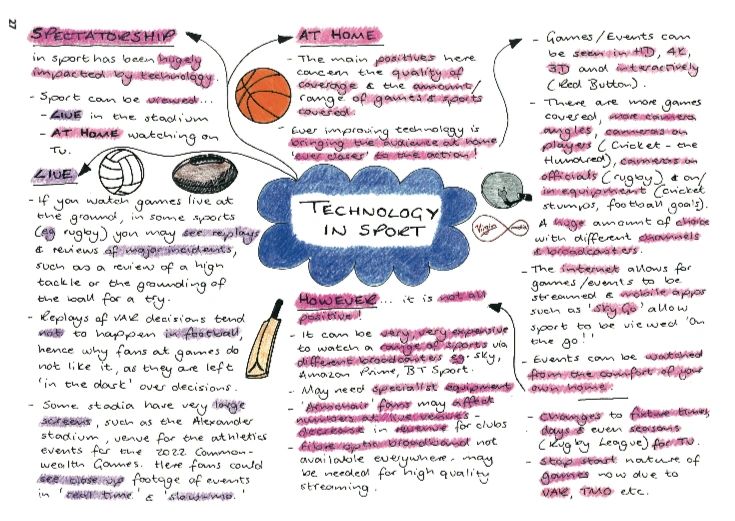 27
SPECTATORSHIP
in sport has been hugely
impacted by technology.
- Sport can be viewed...
- LIVE in the stadium
- AT HOME watching on
Tv.
LIVE
- If you watch games live at
the ground, in some sports
(eg rugby) you may see replays
& reviews of major incidents,
such as a review of a high
tackle or the grounding of
the ball for a try.
- Replays of VAR decisions tend
not to happen in football,
hence why fans at games do
not like it, as they are left
'in the dark' over decisions.
- Some stadia have very large
screens, such as the Alexander
stadium, venue for the athletics
events for the 2022 Common-
wealth Games. Here fans could
see close up footage of events
in 'real time' & 'slow-mo.'
AT HOME
- The main positives here
concern the quality of
coverage & the amount/
range of games & sports
covered.
- Ever improving technology is
bringing the audience at home
'ever closer' to the action!
TECHNOLOGY
IN SPORT
Virgin media
HOWEVER... it is not all
positive!
- It can be very very expensive
to watch a range of sports via
different broadcasters eg. sky,
Amazon Prime, BT Sport.
- May need specialist equipment
- 'Armchair' fans may affect
numbers at live venues -
decrease in revenue for clubs
- Fibre optic broadband not
available everywhere - may
be needed for high quality
streaming.
- Games/Events can
be seen in HD, 4K,
3D and interactively
(Red Button).
- There are more games
covered, more camera
angles, cameras on
players (Cricket - the
Hundred), cameras on
officials (rugby) & on/
in equipment (cricket
stumps, football goals).
- A huge amount of choice
with different channels
& broadcasters.
- The internet allows for
games/events to be
streamed & mobile apps
such as 'Sky Go' allow
sport to be viewed 'on
the go!'
- Events can be watched
from the comfort of your
own home.
- Changes to fixture times,
days & even seasons
(Rugby League) for Tv.
- Stop start nature of
games now due to
VAR, TMO etc.